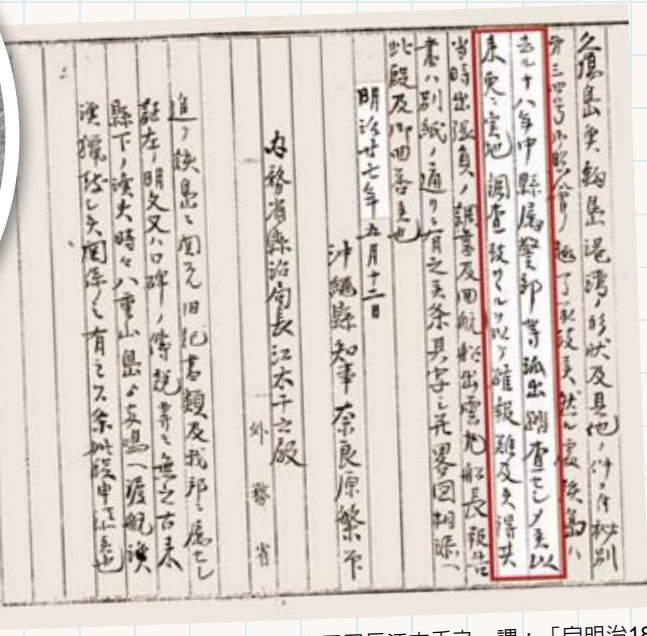 久場島魚釣島港湾ノ形状及其他ノ件ニ付秘別
第三四号御照会ノ趣了承致候然ル処該島ハ
去ル十八年中県属警部等派出踏査セシメ候以
来更ニ実地調査致サヽルヲ以テ確報難及候得共
当時出張員ノ調書及回航船出雲丸船長報告
書ハ別紙ノ通リニ有之候条其写ニ略図相添ヘ
此段及御回答候也
明治廿七年五月十二日
沖縄縣知事奈良原繁
内務省縣治局長江木千之殿
外務省
追テ該島ニ関スル旧記書類及我邦ニ属セシ
証左ノ明文又ハ口碑ノ伝説等モ無之古来
縣下ノ漁夫時々八重山島ヨリ両島ヘ渡航漁
猟致シ候関係ノミ有之候条此段申添候也
明治18